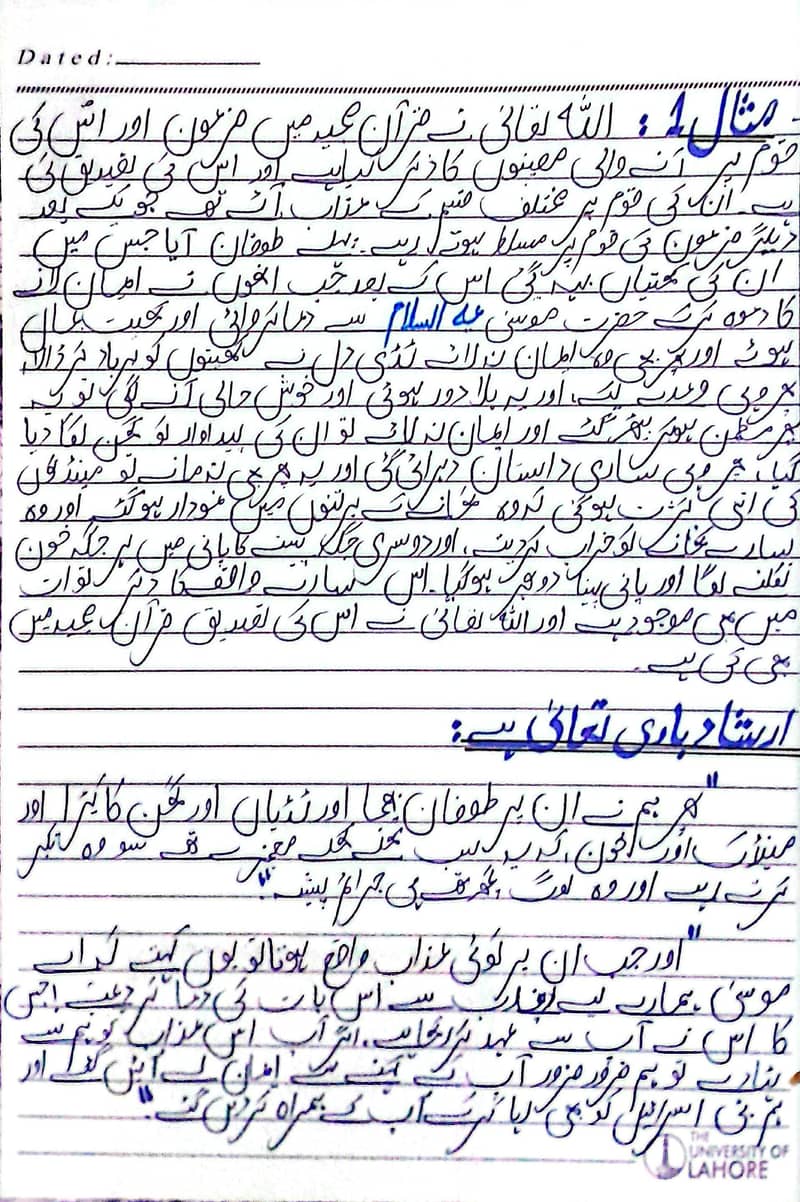 Dated:
مثال 1: اللہ تعالیٰ نے قرآن مجید میں فرعون اور اس کی
قوم پر آنے والی مصیبتوں کا ذکر کیا ہے اور اس کی تصدیق کی
ہے۔ ان کی قوم پر مختلف قسم کے عذاب آئے تھے جو یکے بعد
دیگرے فرعون کی قوم پر مسلط ہوتے رہے۔ پہلے طوفان آیا جس میں
ان کی کھیتیاں بہہ گئی اس کے بعد جب انھوں نے ایمان لانے
کا دعوہ کرکے حضرت موسیٰ علیہ السلام سے دعا کروائی اور جب بحال
ہوئے اور پھر بھی وہ ایمان نہ لائے ٹڈی دل نے کھیتوں کو برباد کر ڈالا
پھر وہی وعدے کیے، اور یہ بلا دور ہوئی اور خوش حالی آنے لگی تو یہ
پھر مطمئن ہوکر پھر گئے اور ایمان نہ لائے تو ان کی پیداوار کو گھن لگا دیا
گیا، پھر وہی ساری داستان دہرائی گئی اور یہ پھر بھی نہ مانے تو مینڈکوں
کی اتنی کثرت ہوگئی کہ وہ کھانے کے برتنوں میں نمودار ہوگئے اور وہ
سارے کھانے کو خراب کردیتے، اور دوسری جگہ پینے کا پانی میں ہر جگہ خون
نکلنے لگا اور پانی پینا دوبھر ہوگیا۔ اس سارے واقعہ کا ذکر تورات
میں بھی موجود ہے اور اللہ تعالیٰ نے اس کی تصدیق قرآن مجید میں
بھی کی ہے۔
ارشاد باری تعالیٰ ہے:
"پھر ہم نے ان پر طوفان بھیجا اور ٹڈیاں اور گھن کا کیڑا اور
مینڈک اور خون، کہ یہ سب کھلے کھلے معجزے تھے سو وہ تکبر
کرتے رہے اور وہ لوگ تھے ہی جرائم پیشہ"
"اور جب ان پر کوئی عذاب واقع ہوتا تو یوں کہتے کہ اے
موسیٰ ہمارے لیے اپنے رب سے اس بات کی دعا کر دیجئے! جس
کا اس نے آپ سے عہد کر رکھا ہے، اگر آپ اس عذاب کو ہم سے
ہٹا دے تو ہم ضرور ضرور آپ کے کہنے سے ایمان لے آئیں گے اور
ہم بنی اسرائیل کو بھی رہا کرکے آپ کے ہمراہ کردیں گے"
THE
UNIVERSITY OF
LAHORE